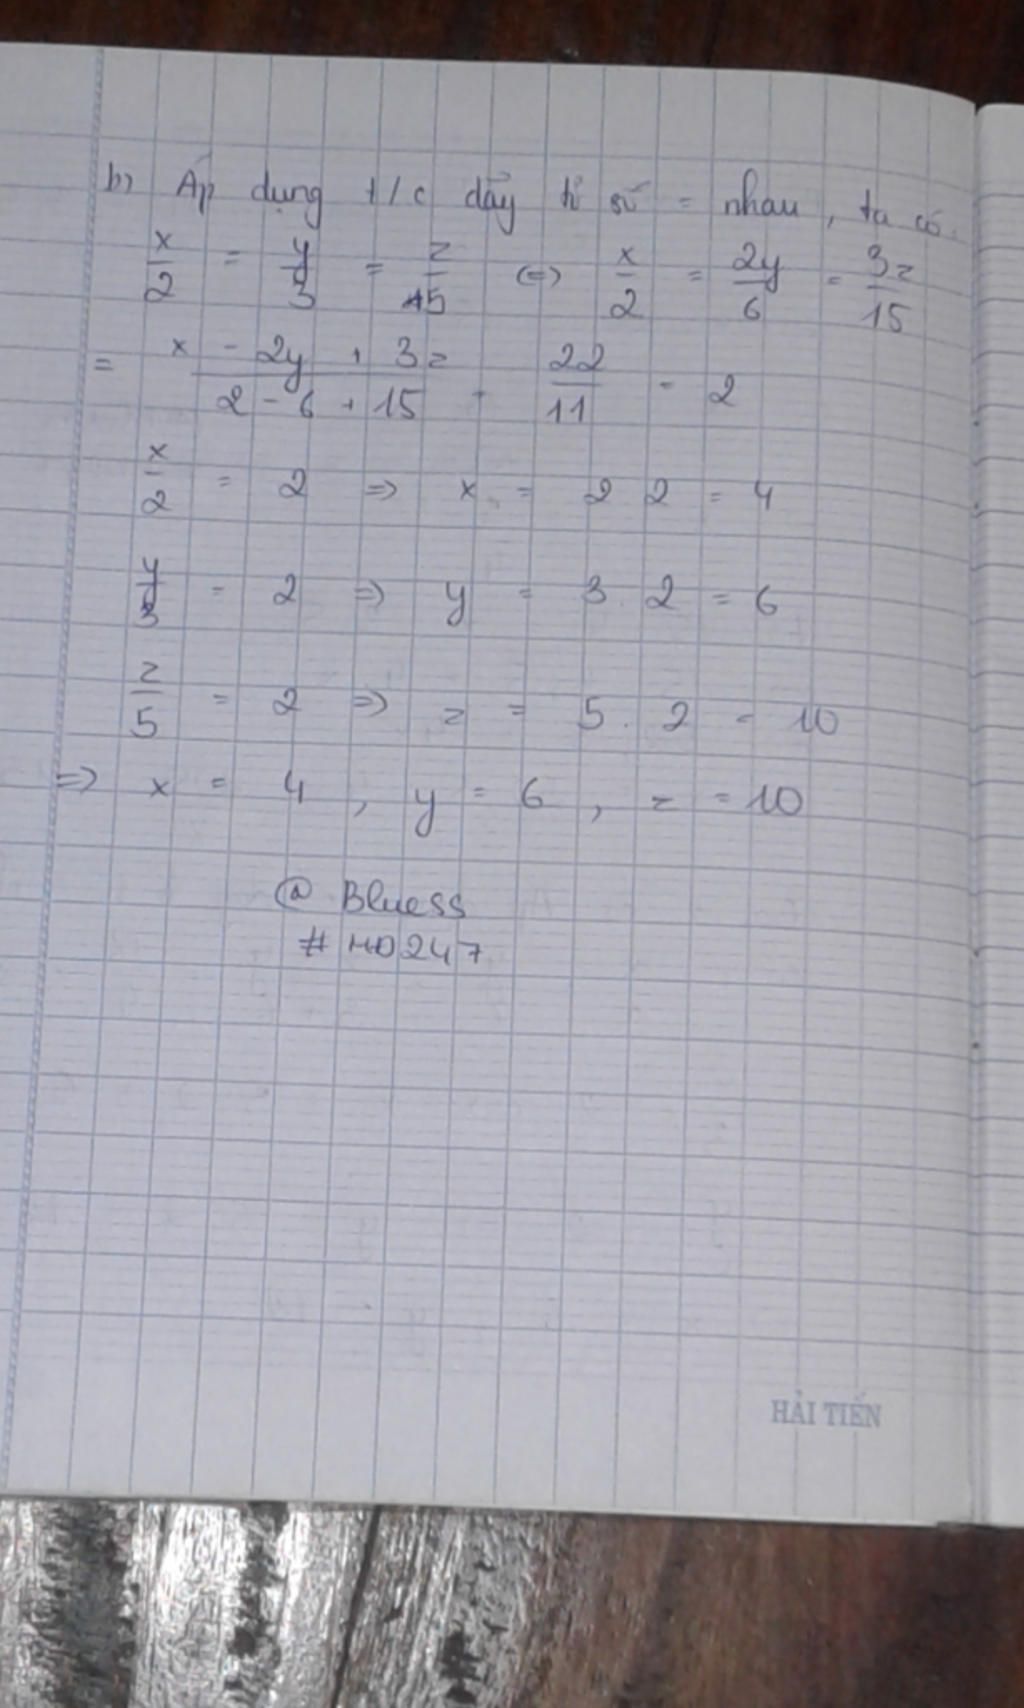 b) Áp dụng t/c dãy tỉ số = nhau, ta có.
x/2 = y/3 = z/5 <=> x/2 = 2y/6 = 3z/15
= (x - 2y + 3z)/(2 - 6 + 15) = 22/11 = 2
x/2 = 2 => x = 2.2 = 4
y/3 = 2 => y = 3.2 = 6
z/5 = 2 => z = 5.2 = 10
=> x = 4, y = 6, z = 10
@ Bluess
# HD247
HẢI TIẾN